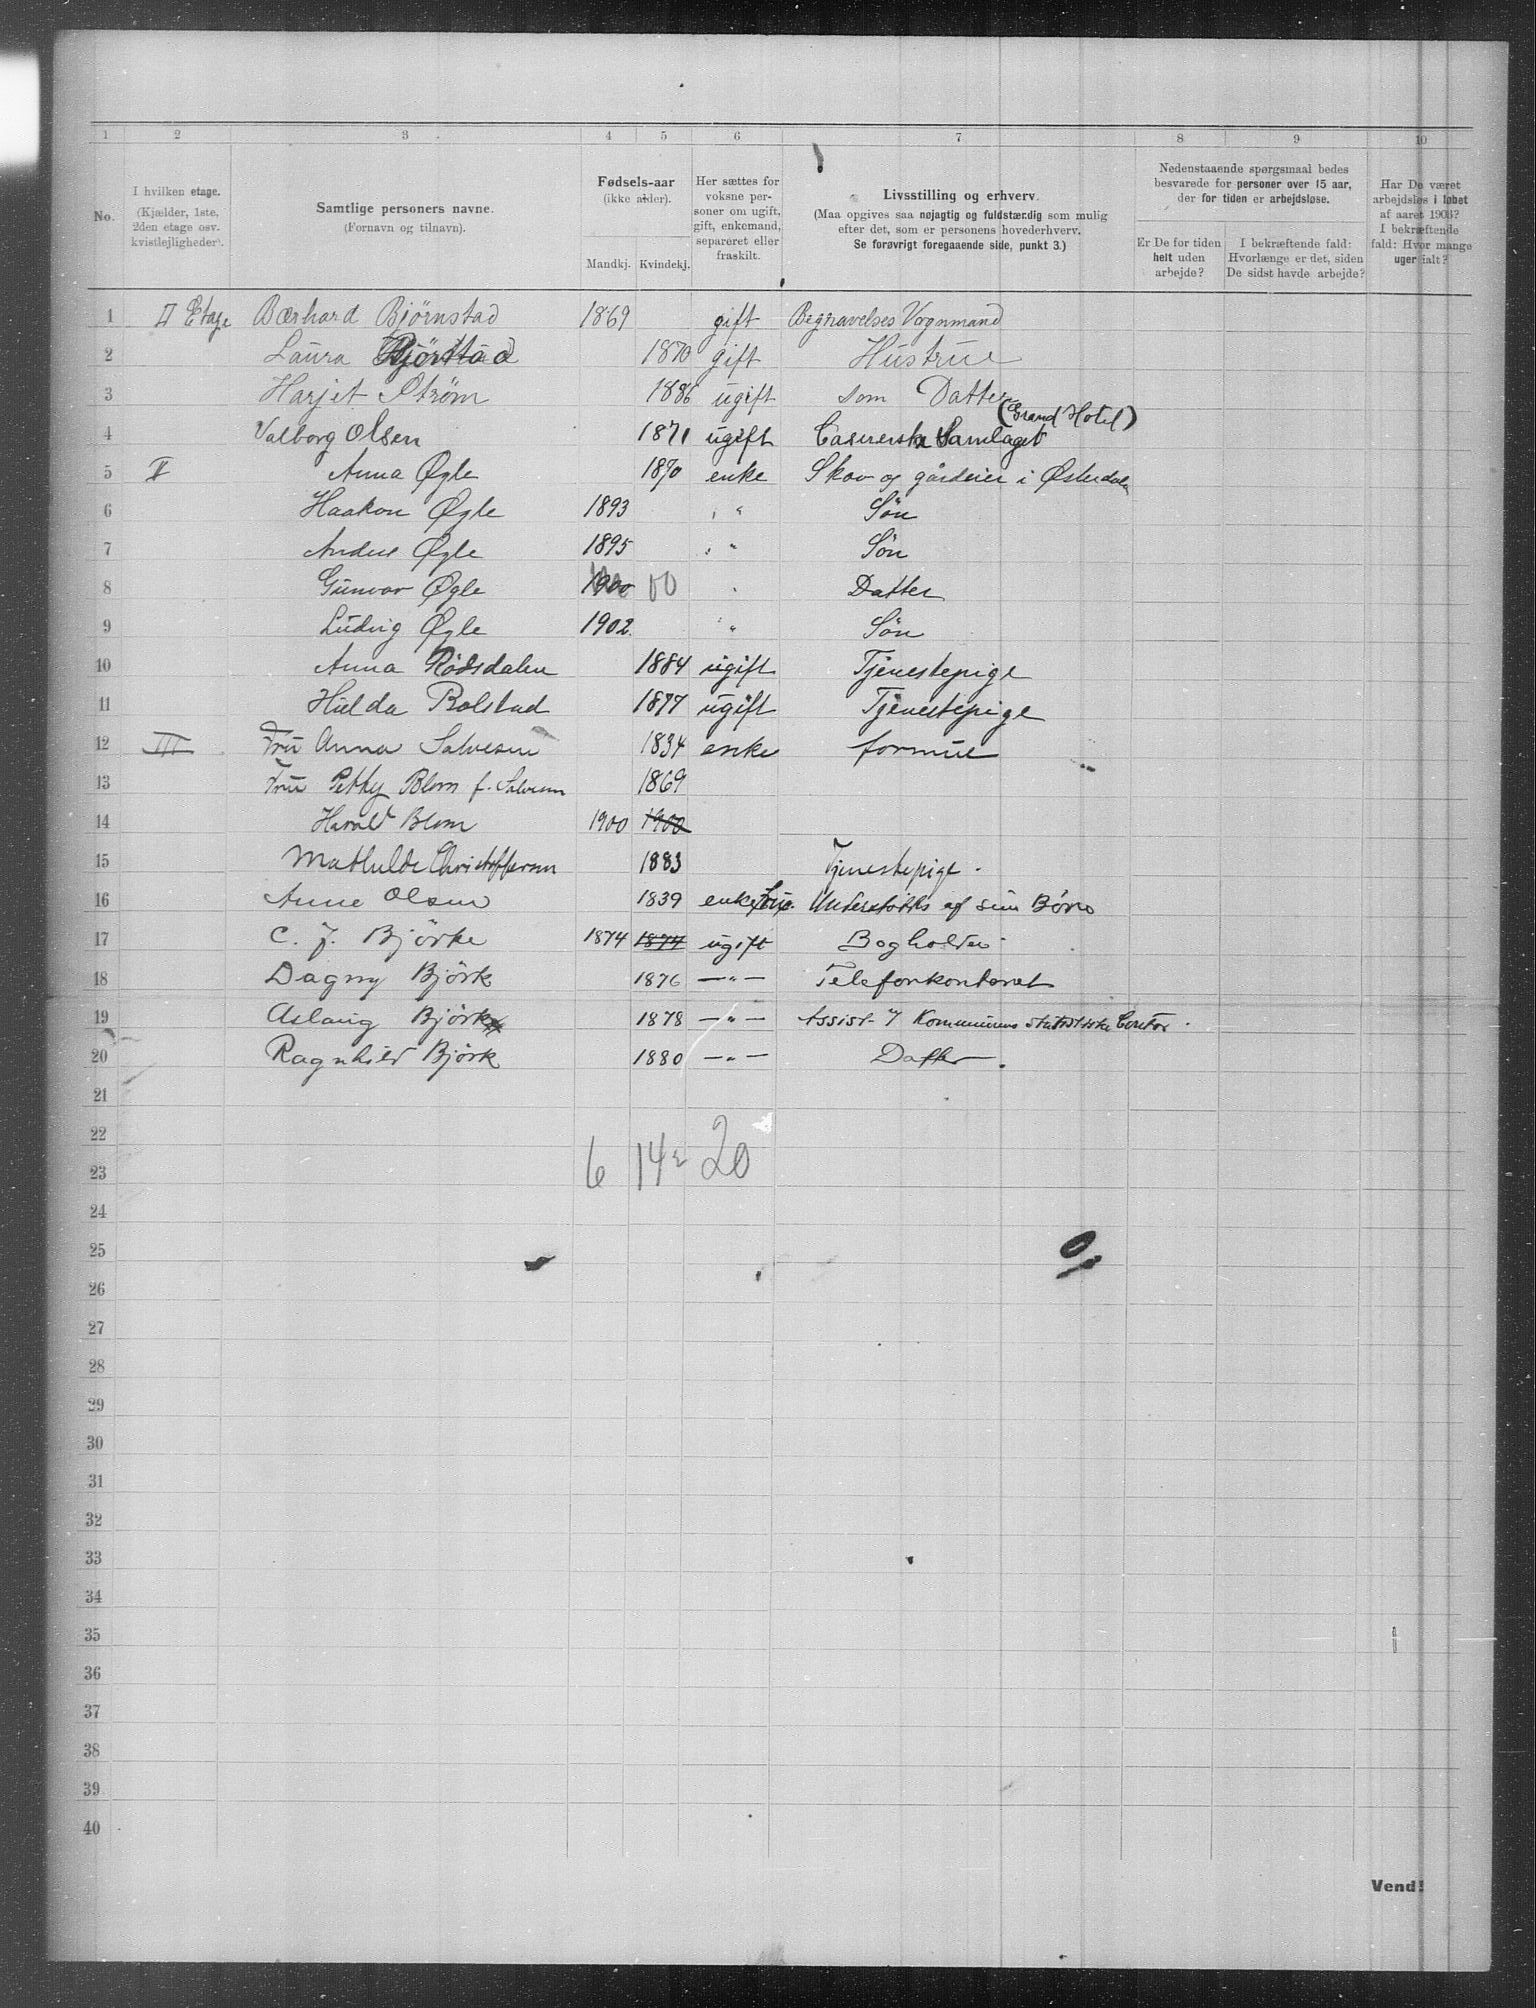 1 2 3 4 5 6 7 8 9 10
No.
I hvilken etage.
(Kjælder, 1ste,
2den etage osv.
kvistlejligheder).
Samtlige personers navne.
(Fornavn og tilnavn).
Fødsels-aar
(ikke alder).
Mandkj. Kvindekj.
Her sættes for
voksne per-
soner om ugift,
gift, enkemand,
separeret eller
fraskilt.
Livsstilling og erhverv.
(Maa opgives saa nøjagtig og fuldstændig som mulig
efter det, som er personens hovederhverv.
Se forøvrigt foregaaende side, punkt 3.)
Nedenstaaende spørgsmaal bedes
besvarede for personer over 15 aar,
der for tiden er arbejdsløse.
Er De for tiden
helt uden
arbejde?
I bekræftende fald:
Hvorlænge er det, siden
De sidst havde arbejde?
Har De været
arbejdsløs i løbet
af aaret 1903?
I bekræftende
fald: Hvor mange
uger ialt?
1 II Etage Bærhard Bjørnstad 1869 gift Begravelses Vognmand
2 Laura 1870 gift Hustrue
3 Harjet Strøm 1886 ugift som Datter
(Grand Hotel)
4 Valborg Olsen 1871 ugift Casererske Samlaget
5 II Anna Øgle 1870 enke Skov og gårdeier i Østerdalen
6 Haakon Øgle 1893 " " Søn
7 Anders Øgle 1895 " " Søn
8 Gunvor Øgle 1900 00 " Datter
9 Ludvig Øgle 1902. " " Søn
10 Anna Rödsdalen 1884 ugift Tjenestepige
11 Hulda Bolstad 1877 ugift Tjenestepige
12 III Fru Anna Salvesen 1834 enke formue
13 Fru Petky Blom f. Salvesen 1869
14 Harald Blom 1900 1900
15 Mathilde Christoffersen 1883 Tjenestepige.
16 Anne Olsen 1839 enkefrue. Understøttes af sine Børn
17 C. J. Bjørke 1874 1874 ugift Bogholder
18 Dagny Bjørk 1876 —"— Telefonkontoret
19 Aslaug Bjørk 1878 —"— Assist. v/ Kommunens statistiske Contor.
20 Ragnhild Bjørk 1880 —"— Datter.
21
22
6 14 20
23
24
25
26
27
28
29
30
31
32
33
34
35
36
37
38
39
40
Vend!